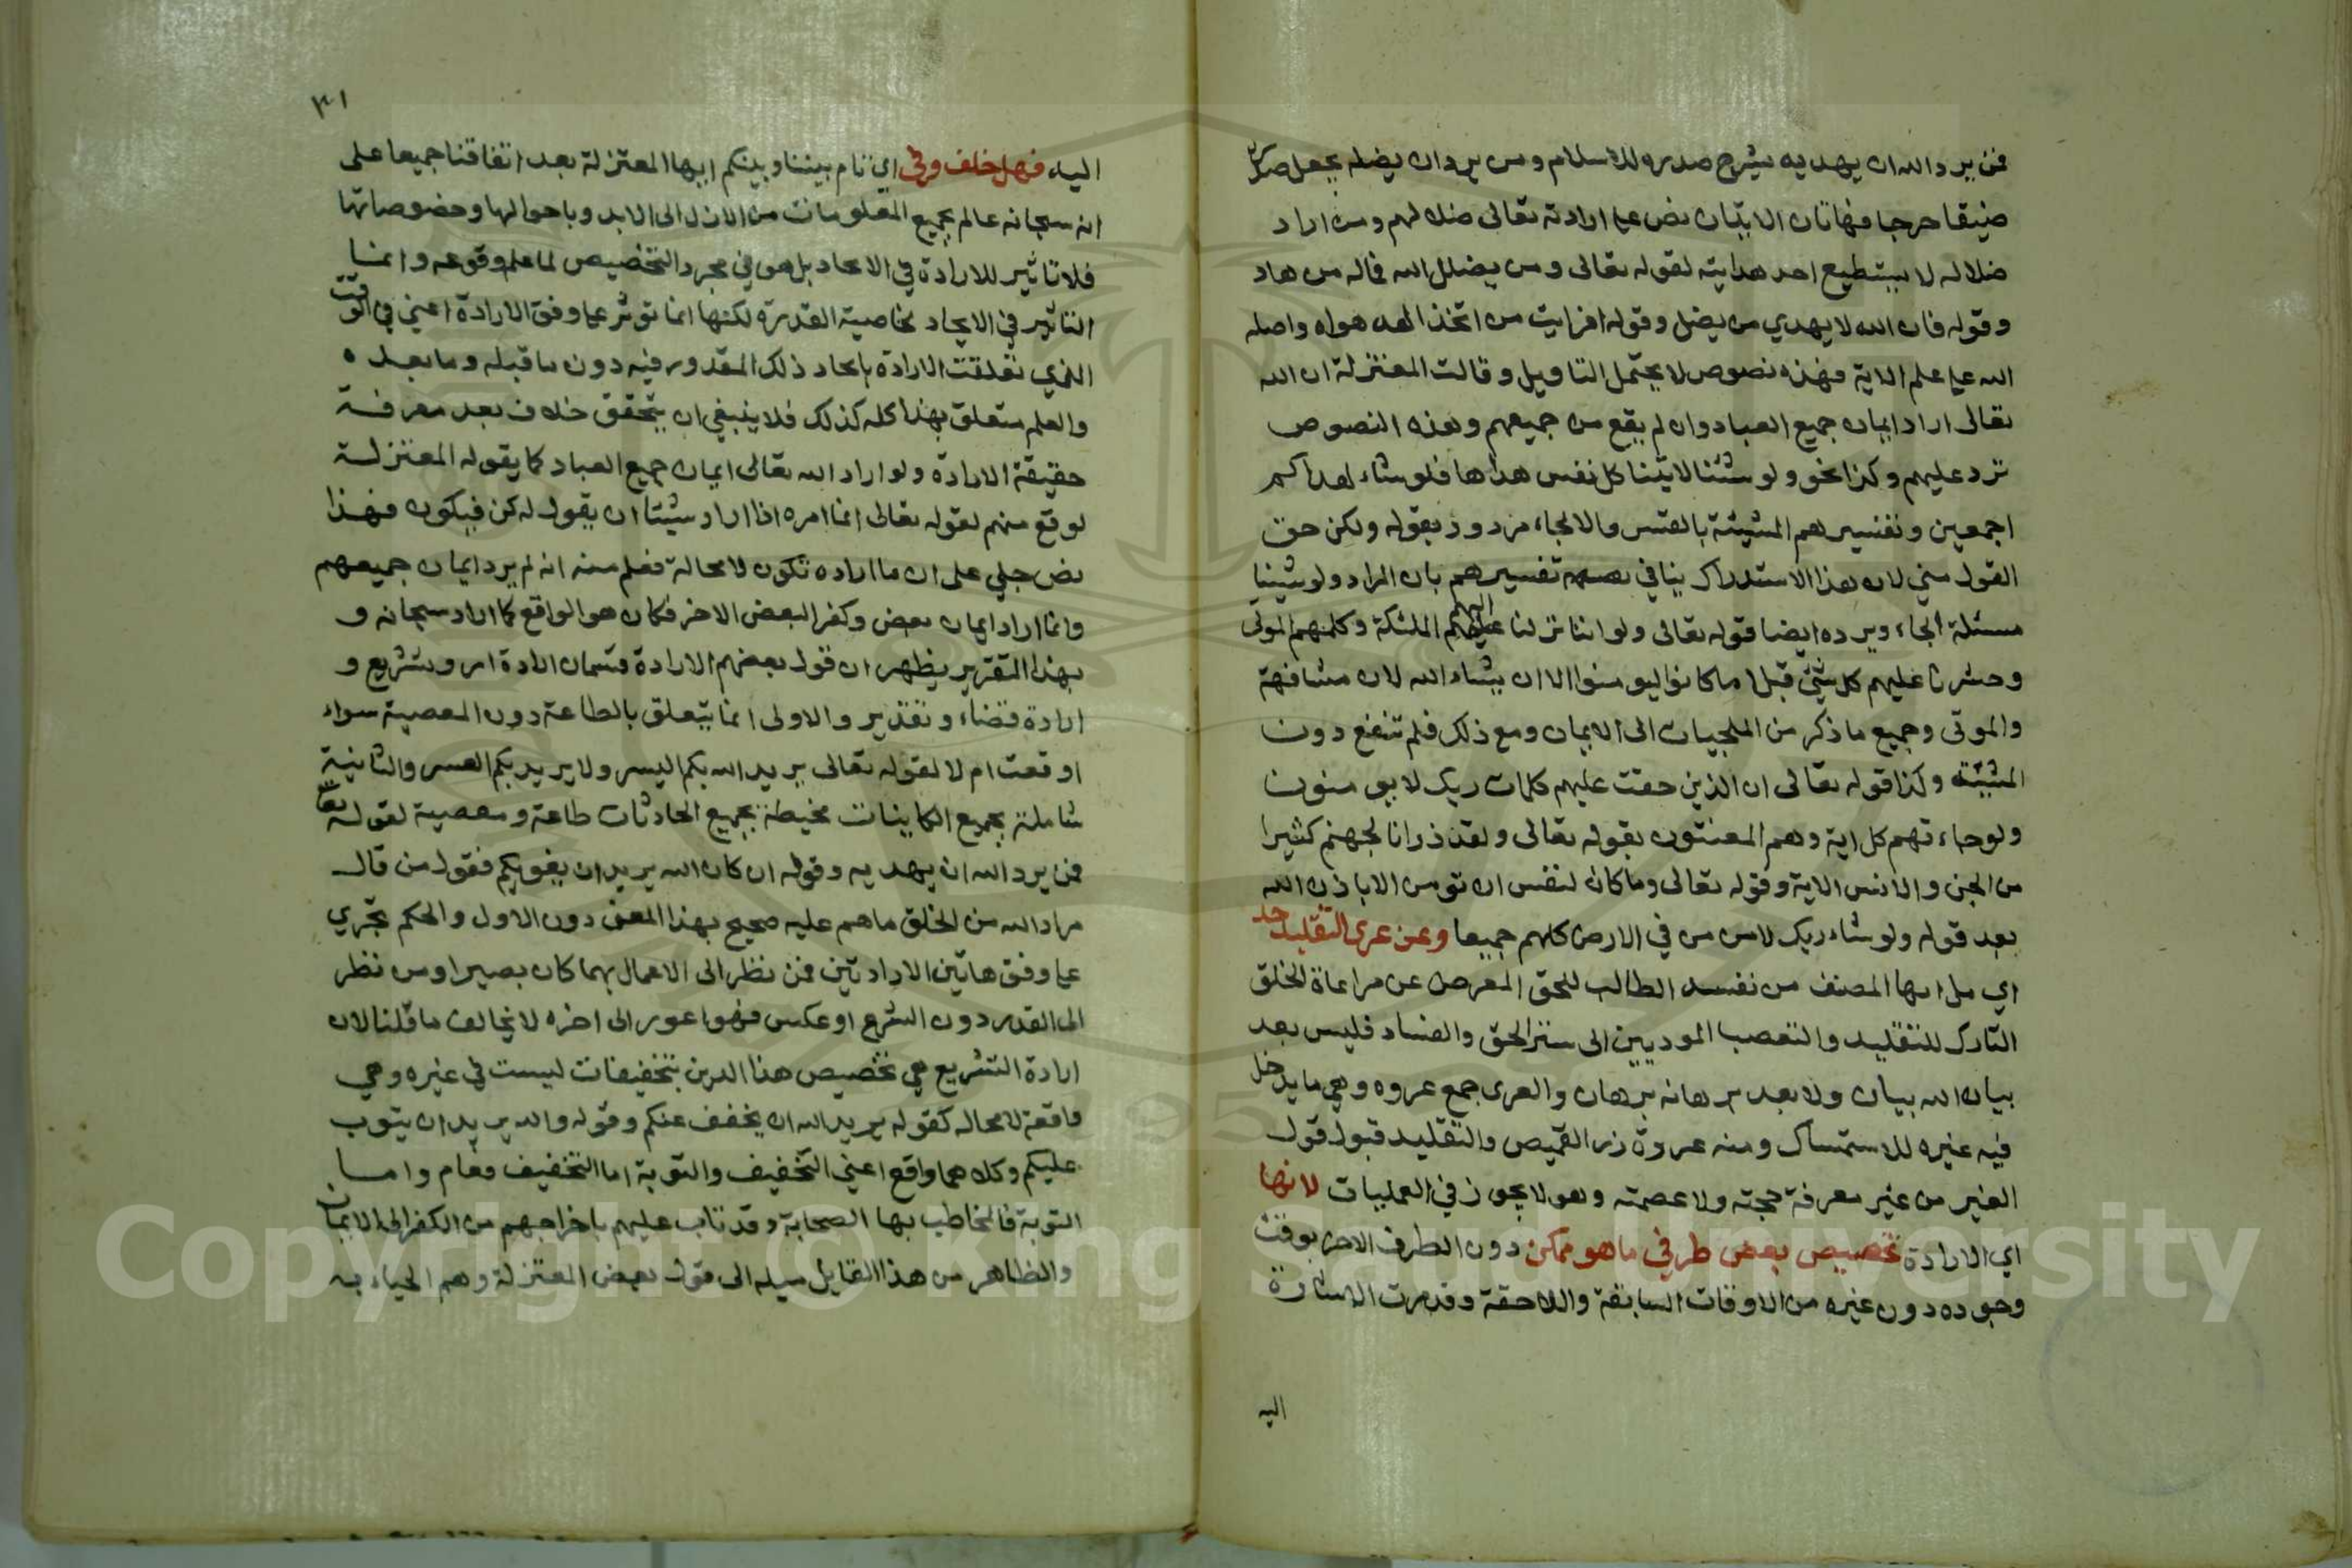 فمن يرد الله ان يهديه يشرح صدره للاسلام ومن يرد ان يضله يجعل صدره
ضيقا حرجا فهاتان الايتان نص على ارادته تعالى ضلالهم ومن اراد
ضلاله لا يستطيع احد هدايته لقوله تعالى ومن يضلل الله فماله من هاد
وقوله فان الله لا يهدي من يضل وقوله افرايت من اتخذ الهه هواه واضله
الله على علم الاية فهذه نصوص لا يحتمل التاويل وقالت المعتزلة ان الله
تعالى اراد ايمان جميع العباد وان لم يقع من جميعهم وهذه النصوص
ترد عليهم وكذا نحو ولو شئنا لاتينا كل نفس هداها فلو شاء لهداكم
اجمعين وتفسيرهم المشيئة بالقسر والالجاء مردود بقوله ولكن حق
القول مني لان هذا الاستدراك ينافي تفسيرهم بان المراد ولو شيئنا
مسئلة الجاء ويرده ايضا قوله تعالى ولو اننا نزلنا اليهم الملئكة وكلمهم الموتى
وحشرنا عليهم كل شيئ قبلا ما كانوا ليومنوا الا ان يشاء الله لان مشافهة
والموتى وجميع ما ذكر من الملجيات الى الايمان ومع ذلك فلم تنفع دون
المشيئة وكذا قوله تعالى ان الذين حقت عليهم كلمات ربك لا يومنون
ولو جاءتهم كل اية وهم المعنتون بقوله تعالى ولقد ذرانا لجهنم كثيرا
من الجن والانس الاية وقوله تعالى وما كان لنفس ان تومن الا باذن الله
بعد قوله ولو شاء ربك لامن من في الارض كلهم جميعا وعن عرى التقليد حد
اي مل ايها المصنف من نفسه الطالب للحق المعرض عن مراعاة الخلق
التارك للتقليد والتعصب الموديين الى ستر الحق والفساد فليس بعد
بيان الله بيان ولا بعد برهانه برهان والعرى جمع عروه وهي ما يدخل
فيه غيره للاستمساك ومنه عروة زر القميص والتقليد قبول قول
الغير من غير معرفة حجته ولا عصمته وهو لا يجوز في العمليات لانها
اي الارادة تخصيص بعض طرفي ما هو ممكن دون الطرف الاخر بوقت
وجوده دون غيره من الاوقات السابقة واللاحقة وقد مرت الاشارة
اليه
٣١
اليه فهل خلف وفى اي تام بيننا وبينكم ايها المعتزلة بعد اتفاقنا جميعا على
انه سبحانه عالم بجميع المعلومات من الازل الى الابد وباحوالها وخصوصاتها
فلا تاثير للارادة في الايجاد بل هو في مجرد التخصيص لما علم وقوعه وانما
التاثير في الايجاد بخاصية القدرة لكنها انما توثر على وفق الارادة اعني في الوقت
الذي تعلقت الارادة بايجاد ذلك المقدور فيه دون ما قبله وما بعده
والعلم متعلق بهذا كله كذلك فلا ينبغي ان يتحقق خلاف بعد معرفة
حقيقة الارادة ولو اراد الله تعالى ايمان جميع العباد كما يقوله المعتزلة
لوقع منهم لقوله تعالى انما امره اذا اراد شيئا ان يقول له كن فيكون فهذا
نص جلي على ان ما اراده تكون لا محالة فعلم منه انه لم يرد ايمان جميعهم
وانما اراد ايمان بعض وكفر البعض الاخر فكان هو الواقع كما اراد سبحانه و
بهذا التقرير يظهر ان قول بعضهم الارادة قسمان ارادة امر وتشريع و
ارادة قضاء وتقدير والاولى انما يتعلق بالطاعة دون المعصية سواء
اوقعت ام لا لقوله تعالى يريد الله بكم اليسر ولا يريد بكم العسر والثانية
شاملة بجميع الكاينات محيطة بجميع الحادثات طاعة ومعصية لقوله تعا
فمن يرد الله ان يهديه وقوله ان كان الله يريد ان يغويكم فقول من قال
مراد الله من الخلق ما هم عليه صحيح بهذا المعنى دون الاول والحكم تجري
على وفق هاتين الارادتين فمن نظر الى الاعمال بهما كان بصيرا ومن نظر
الى القدر دون الشرع او عكس فهو اعور الى اخره لا يخالف ما قلنا لان
ارادة التشريع هي تخصيص هذا الدين بتخفيفات ليست في غيره وهي
واقعة لا محاله كقوله يريد الله ان يخفف عنكم وقوله والله يريد ان يتوب
عليكم وكلاهما واقع اعني التخفيف والتوبة اما التخفيف فعام واما
التوبة فالمخاطب بها الصحابة وقد تاب عليهم باخراجهم من الكفر الى الايمان
والظاهر من هذا القايل ميله الى قول بعض المعتزلة وهم
Copyright © King Saud University